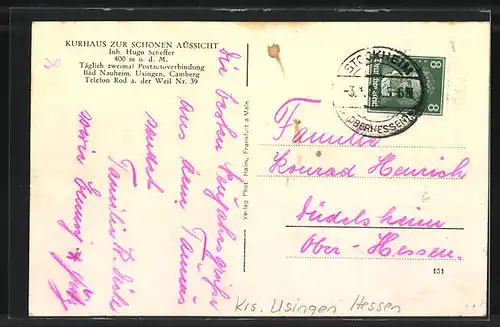 KURHAUS ZUR SCHÖNEN AUSSICHT
Inh. Hugo Scheffer
400 m ü. d. M.
Täglich zweimal Postautoverbindung
Bad Nauheim, Usingen, Camberg
Telefon Rod a. der Weil Nr. 39
Die besten Neujahrsgrüße
aus dem Taunus
sendet
Familie
Verlag Phot. Haim, Frankfurt a Main
STOCKHEIM
(OBERHESSEN)
8 8
Familie
Konrad Henrich
Düdelsheim
Ober-Hessen.
151
Krs. Usingen Hessen